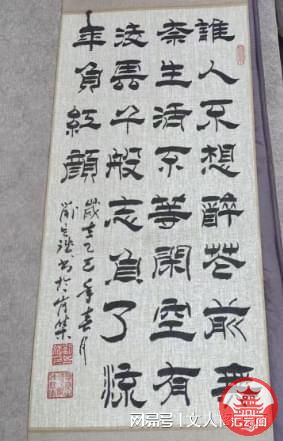 誰人不想醉花前無
奈生活不等閑空有
凌雲千般志負了流
年負紅顏
歲在乙巳年春月
書於
搜狐号@文人
汇云阁